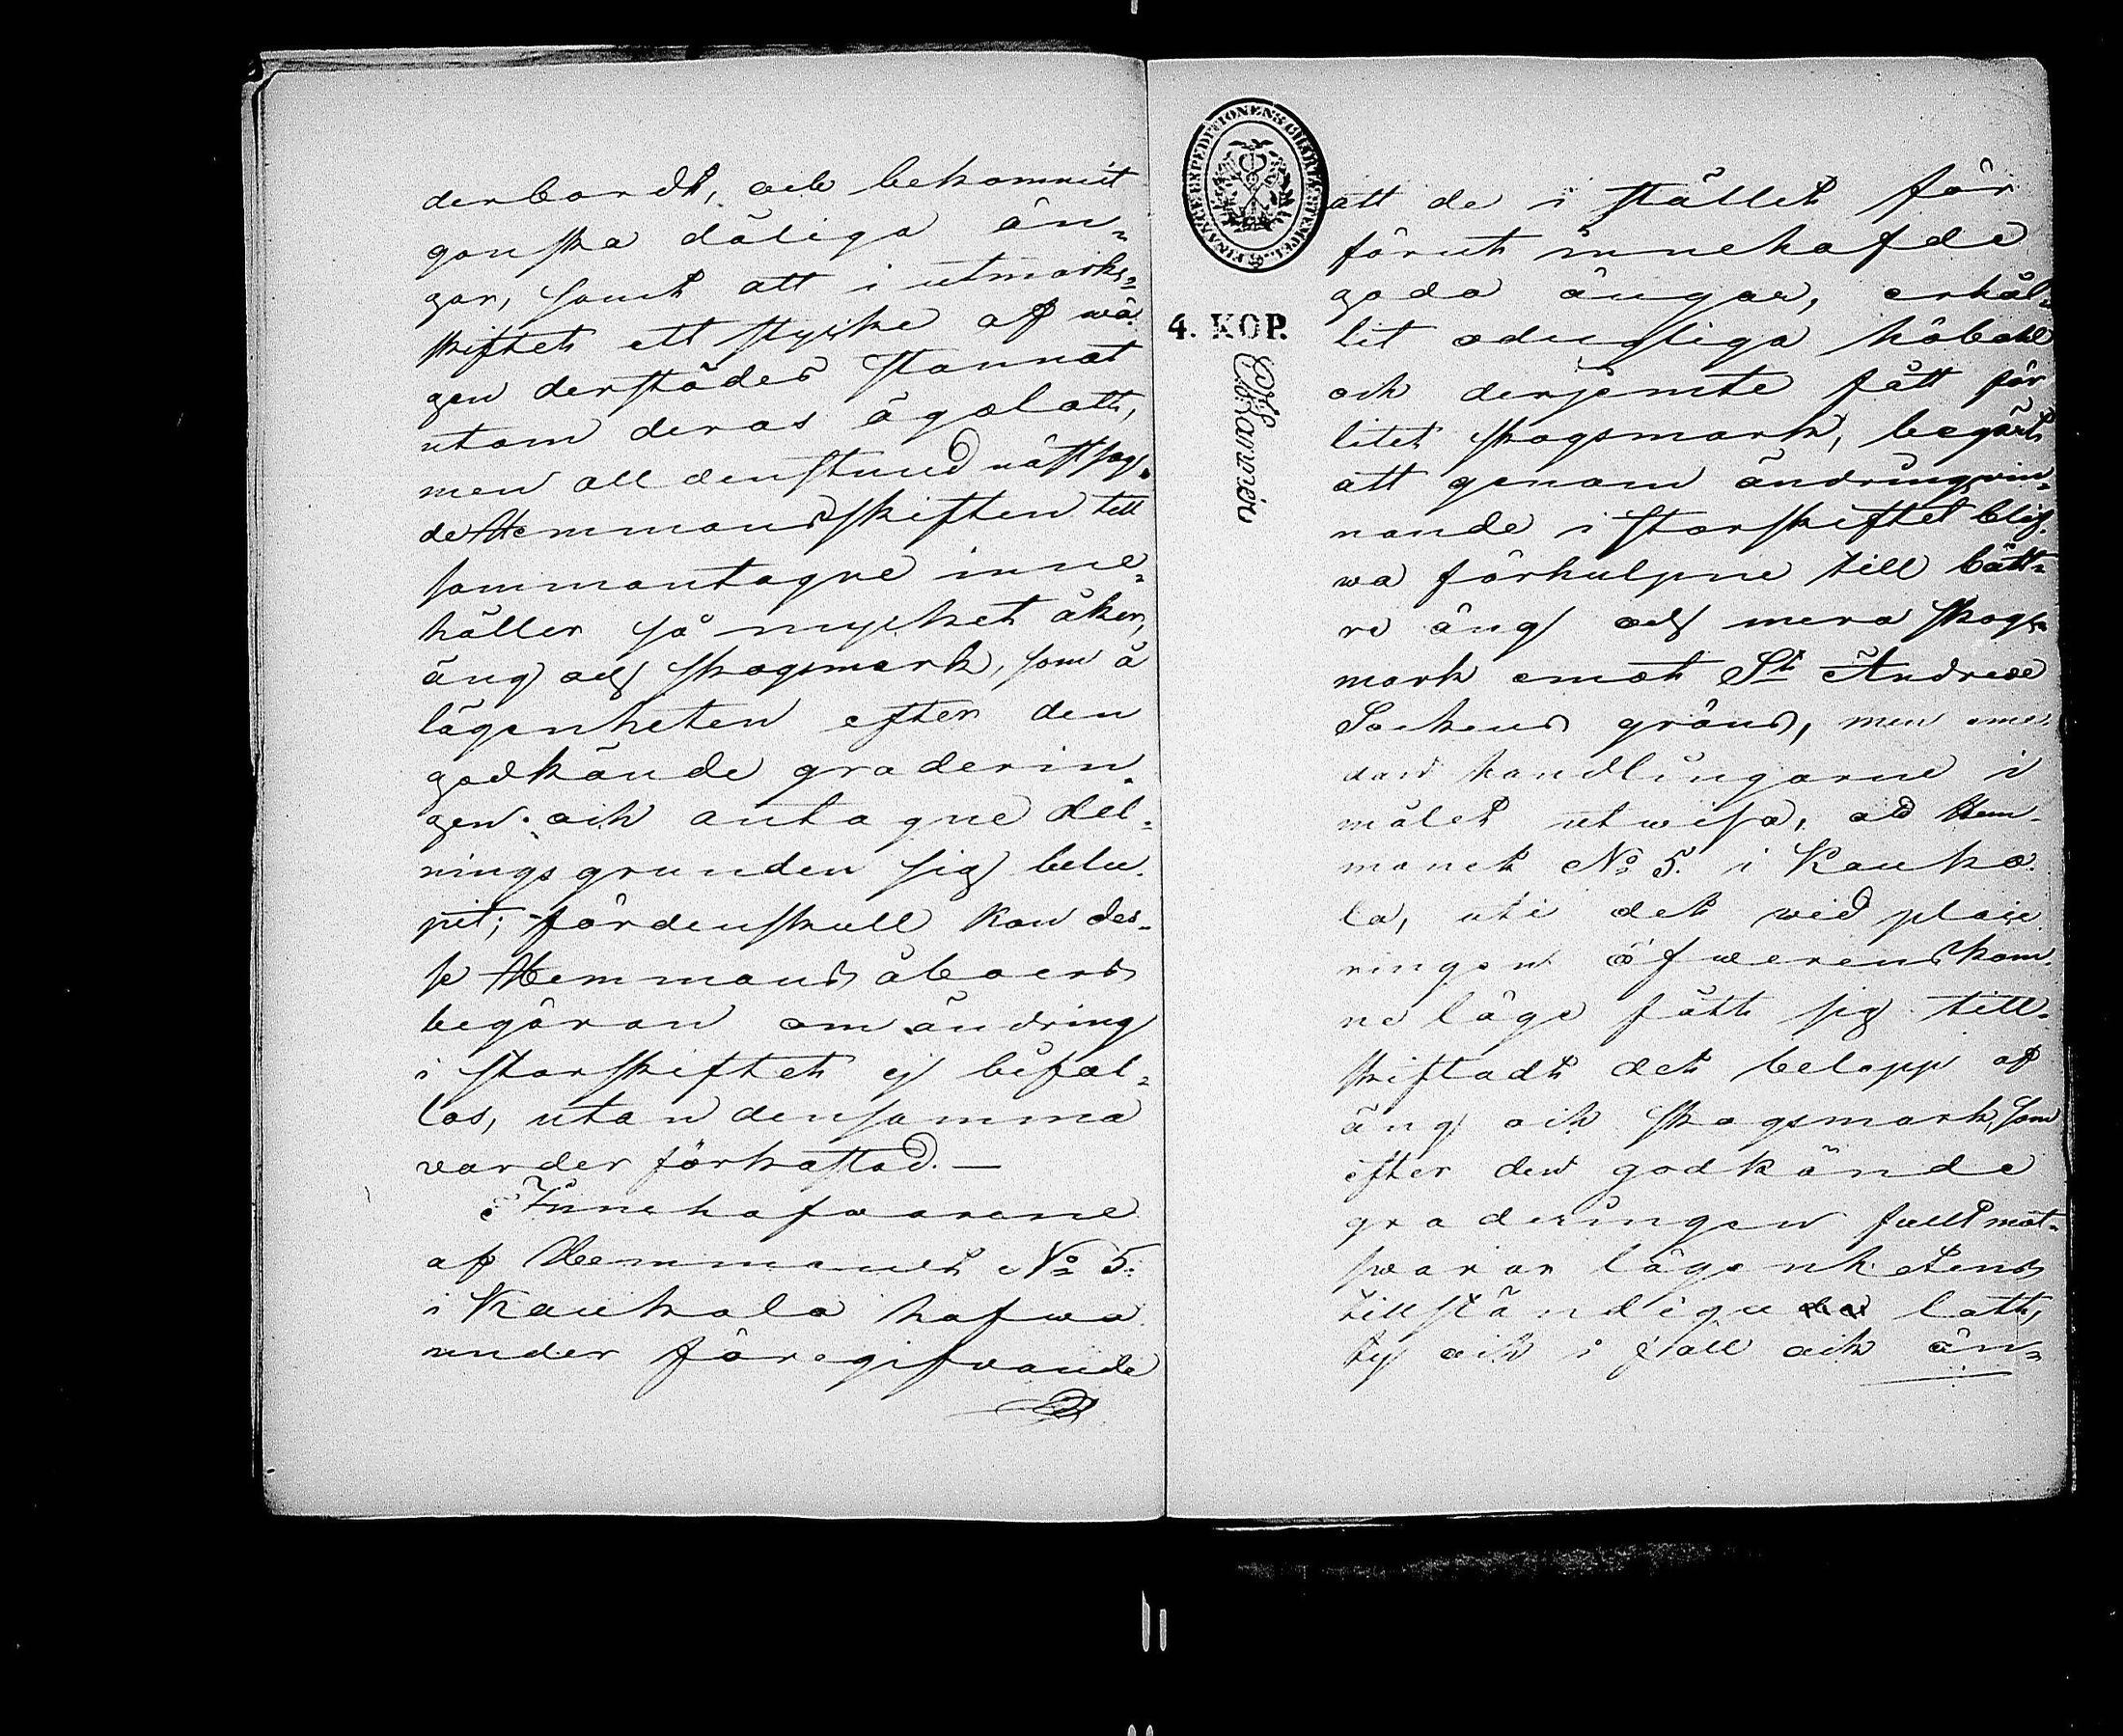 derbordt, och bekommit
ganska dåliga än„
gar, samt att i utmarks„
skiftet ett stycke af wä„
gen derstädes stannat
utom deras ägolott,
men all denstund nästsag„
de Hemmansskiften till
sammantagne inne„
håller så mycket åker,
äng och skogsmark, som å
lägenheten efter den
godkände graderin„
gen och antagne del„
nings grunden sig belu„
pit; fördenskull kan des„
se Hemmans åboers
begäran om ändring
i storskiftet ej bifal„
las, utan densamma
varder förkastad. —
Innehafwarene
af Hemmanet No 5.
i Kaukola hafwa
under föregifvande
att de i stället för
förut innehafde
goda ängar, erhål„
lit odugliga höbohl
och derjemte fått för
litet skogsmark, begärt
att genom ändrings vin„
nande i storskiftet blif„
wa förhulpne till bätt„
re äng och mera skogs„
mark emot St Andreæ
Sockens gräns, men eme„
dan handlingarne i
målet utwisa, att Hem„
manet No 5. i Kauko„
la, uti det wid pläg
ringen öfwerenskom„
ne läge fått sig till„
skiftadt det belopp af
äng och skogsmark, som
efter den godkände
graderingen fullt mot„
swarar lägenhetens
tillständigu lott,
ty och i fall och än„
FINANCE EXPEDITIONENS CHARTÆ STEMPEL
4. KOP.